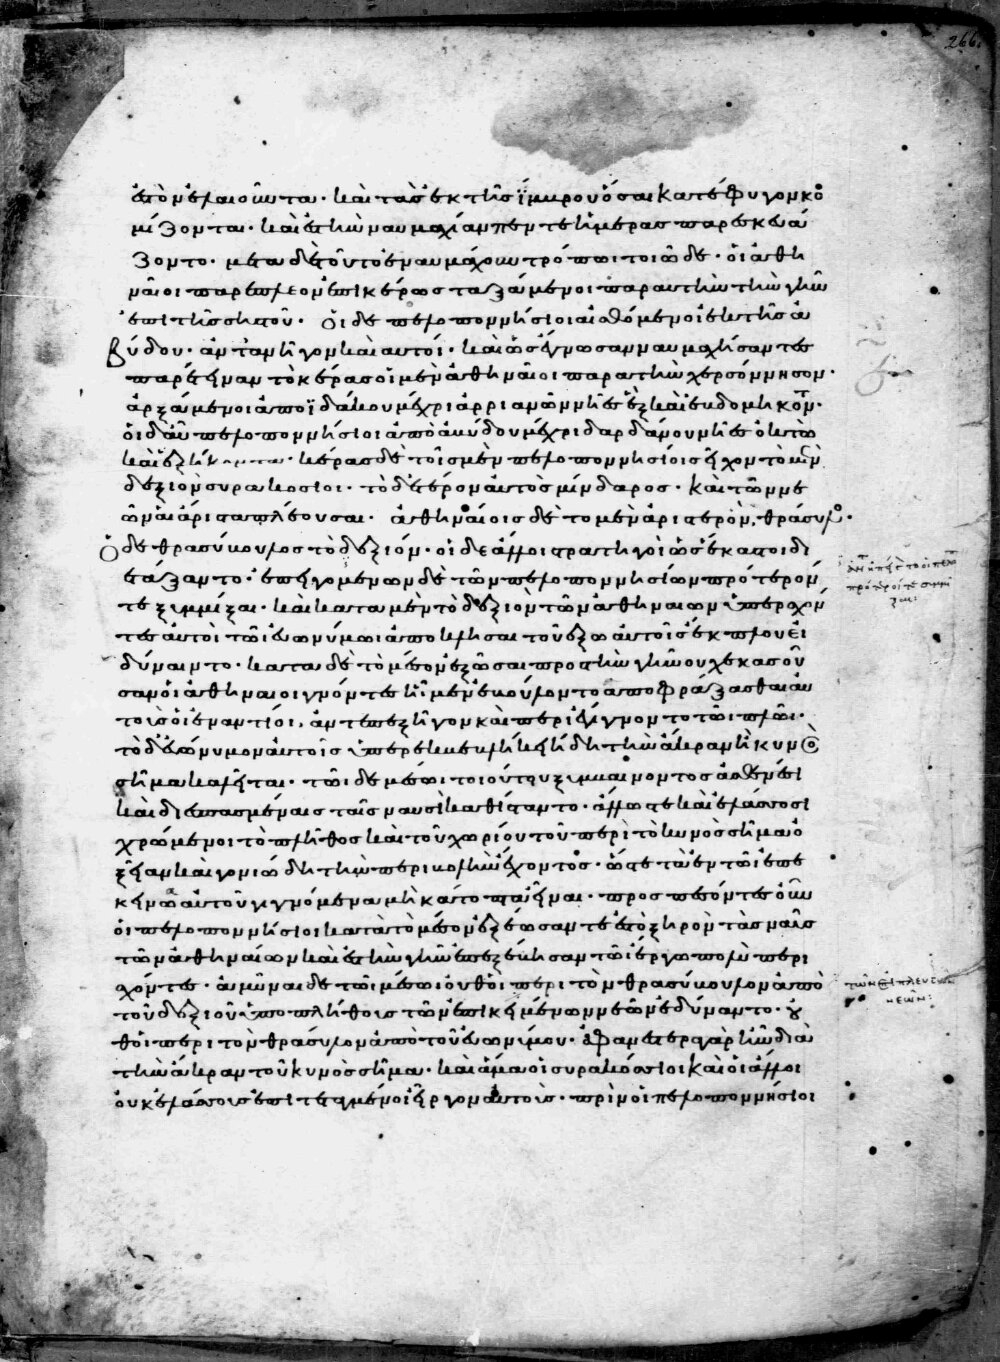 ἐς τὸν ἐλαιοῦντα· καὶ τὰς ἐκ τῆς ἴμβρου ὅσαι κατέφυγον κο
μίζονται· καὶ ἐς τὴν ναυμαχίαν πέντε ἡμέρας παρεσκευά
ζοντο· μετὰ δὲ τοῦτο ἐναυμάχουν τρόπωι τοιῶδε· οἱ ἀθη
ναῖοι παρέπλεον ἐπὶ κέρως ταξάμενοι παρὰ τὴν γῆν
ἐπὶ τῆς σηστοῦ· Οἱ δὲ πελοποννήσιοι αἰσθόμενοι ἐκ τῆς ἀ
βύδου· ἀντανῆγον καὶ αὐτοί· καὶ ὡς ἔγνωσαν ναυμαχήσαντες
παρέτειναν τὸ κέρας οἱ μὲν ἀθηναῖοι παρὰ τὴν χερσόννησον·
ἀρξάμενοι ἀπὸ ἰδάκου μέχρι ἀρριανῶν νῆες ἓξ καὶ ἑβδομήκοντ·
οἱ δ' αὖ πελοποννήσιοι ἀπὸ ἀβύδου μέχρι δαρδάνου νῆες ὀκτὼ
καὶ ἑξήκοντα· κέρας δὲ τοῖς μὲν πελοποννησίοις εἶχον τὸ μὲν
δεξιὸν συρακόσιοι· τὸ δὲ ἕτερον αὐτὸς μίνδαρος· καὶ τῶν νε
ῶν αἱ ἄριστα πλέουσαι· ἀθηναίοις δὲ τὸ μὲν ἀριστερὸν, θράσυλο·
Ὁ δὲ θρασύβουλος τὸ δεξιόν· οἱ δὲ ἄλλοι στρατηγοὶ ὡς ἕκαστοι δι
ετάξαντο· ἐπειγομένων δὲ τῶν πελοποννησίων πρότερόν
τε ξυμμίξαι· καὶ κατὰ μὲν τὸ δεξιὸν τῶν ἀθηναίων ὑπερσχόν
τες αὐτοὶ τῶι εὐωνύμωι ἀποκλῆσαι τοῦ ἔξω αὐτοὺς ἔκπλου εἰ
δύναιντο· κατὰ δὲ τὸ μέσον ἐξῶσαι πρὸς τὴν γῆν οὐχ ἑκὰς οὖ
σαν οἱ ἀθηναῖοι γνόντες ἧι μὲν ἐβούλοντο ἀποφράξασθαι αὐ
τοὺς οἱ ἐναντίοι, ἀντεπεξῆγον καὶ περιεγίγνοντο τῶι πλῶι·
τὸ δ' εὐώνυμον αὐτοῖς ὑπερεβεβλήκει ἤδη τὴν ἄκραν ἣ κυνὸς
σῆμα καλεῖται· τῶι δὲ μέσωι τοιούτου ξυμβαίνοντος ἀσθενέσι
καὶ διεσπασμέναις ταῖς ναυσὶ καθίσταντο· ἄλλως τε καὶ ἐλάσσοσι
χρώμενοι τὸ πλῆθος καὶ τοῦ χωρίου τοῦ περὶ τὸ κυνὸς σῆμα ὀ
ξεῖαν καὶ γωνιώδη τὴν περιβολὴν ἔχοντος· ὥστε τὰ ἐν τῶι ἐπέ
κεινα αὐτοῦ γιγνόμενα μὴ κάτοπτα εἶναι· προσπεσόντες οὖν
οἱ πελοποννήσιοι κατὰ τὸ μέσον ἐξέωσάν τε ἐς τὸ ξηρὸν τὰς ναῦς
τῶν ἀθηναίων καὶ ἐς τὴν γῆν ἐπεξέβησαν τῶι ἔργω πολὺ περι
σχόντες· ἀμῦναι δὲ τῶι μέσωι οὔθ' οἱ περὶ τὸν θρασύβουλον ἀπὸ
τοῦ δεξιοῦ ὑπὸ πλήθους τῶν ἐπικειμένων νεῶν ἐδύναντο· οὔ
θ' οἱ περὶ τὸν θράσυλον ἀπὸ τοῦ εὐωνύμου· ἀφανές τε γὰρ ἦν διὰ
τὴν ἄκραν τοῦ κυνὸς σῆμα· καὶ ἅμα οἱ συρακόσιοι καὶ οἱ ἄλλοι
οὐκ ἐλάσσους ἐπιτεταγμένοι εἶργον αὐτούς· πρὶν οἱ πελοποννήσιοι